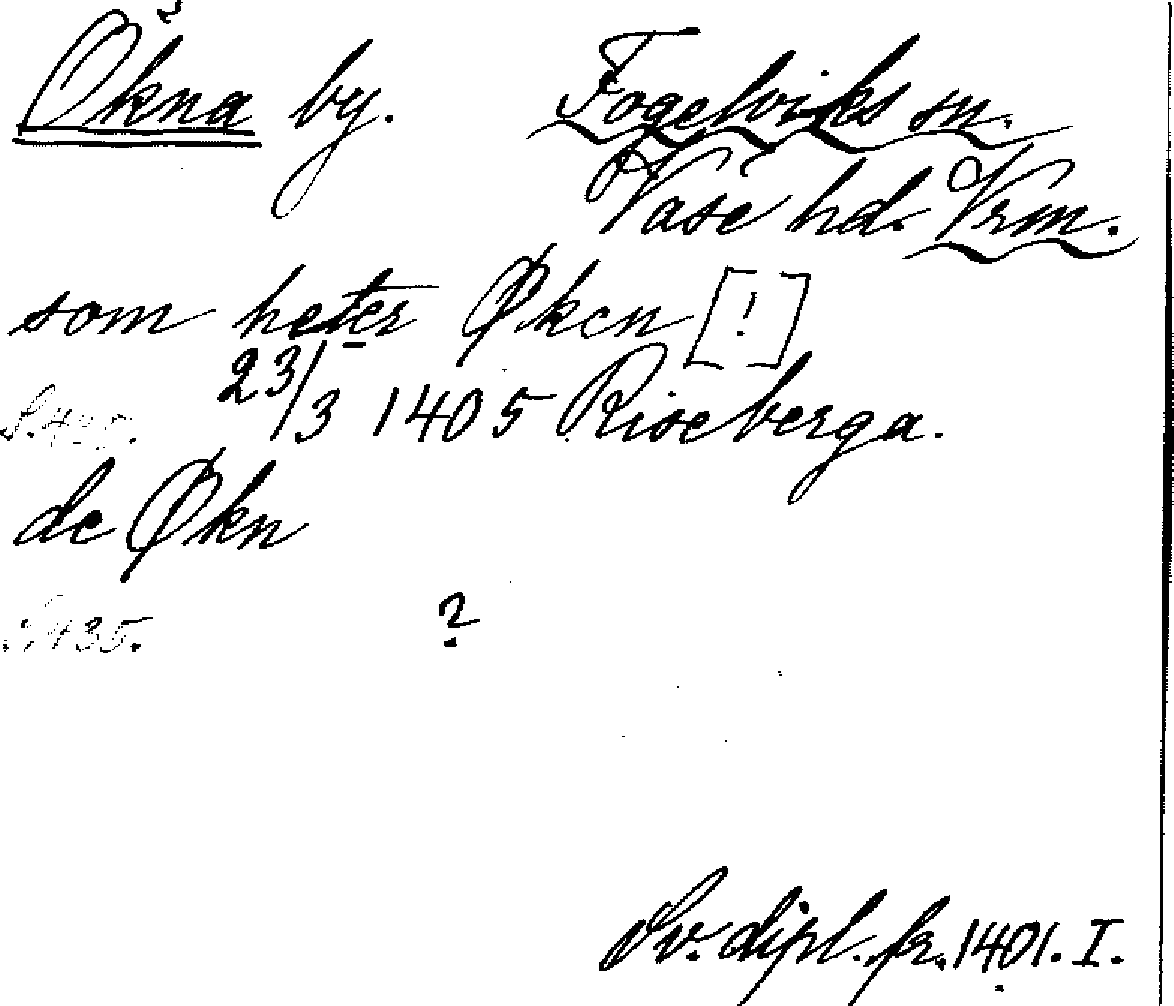 Ökna by. Fogelviks sn.
Väse hd. Vrm.
som heter Øken [!]
23/3 1405 Riseberga.
de Økn
S. 435. ?
Sv. dipl. fr. 1401. I.